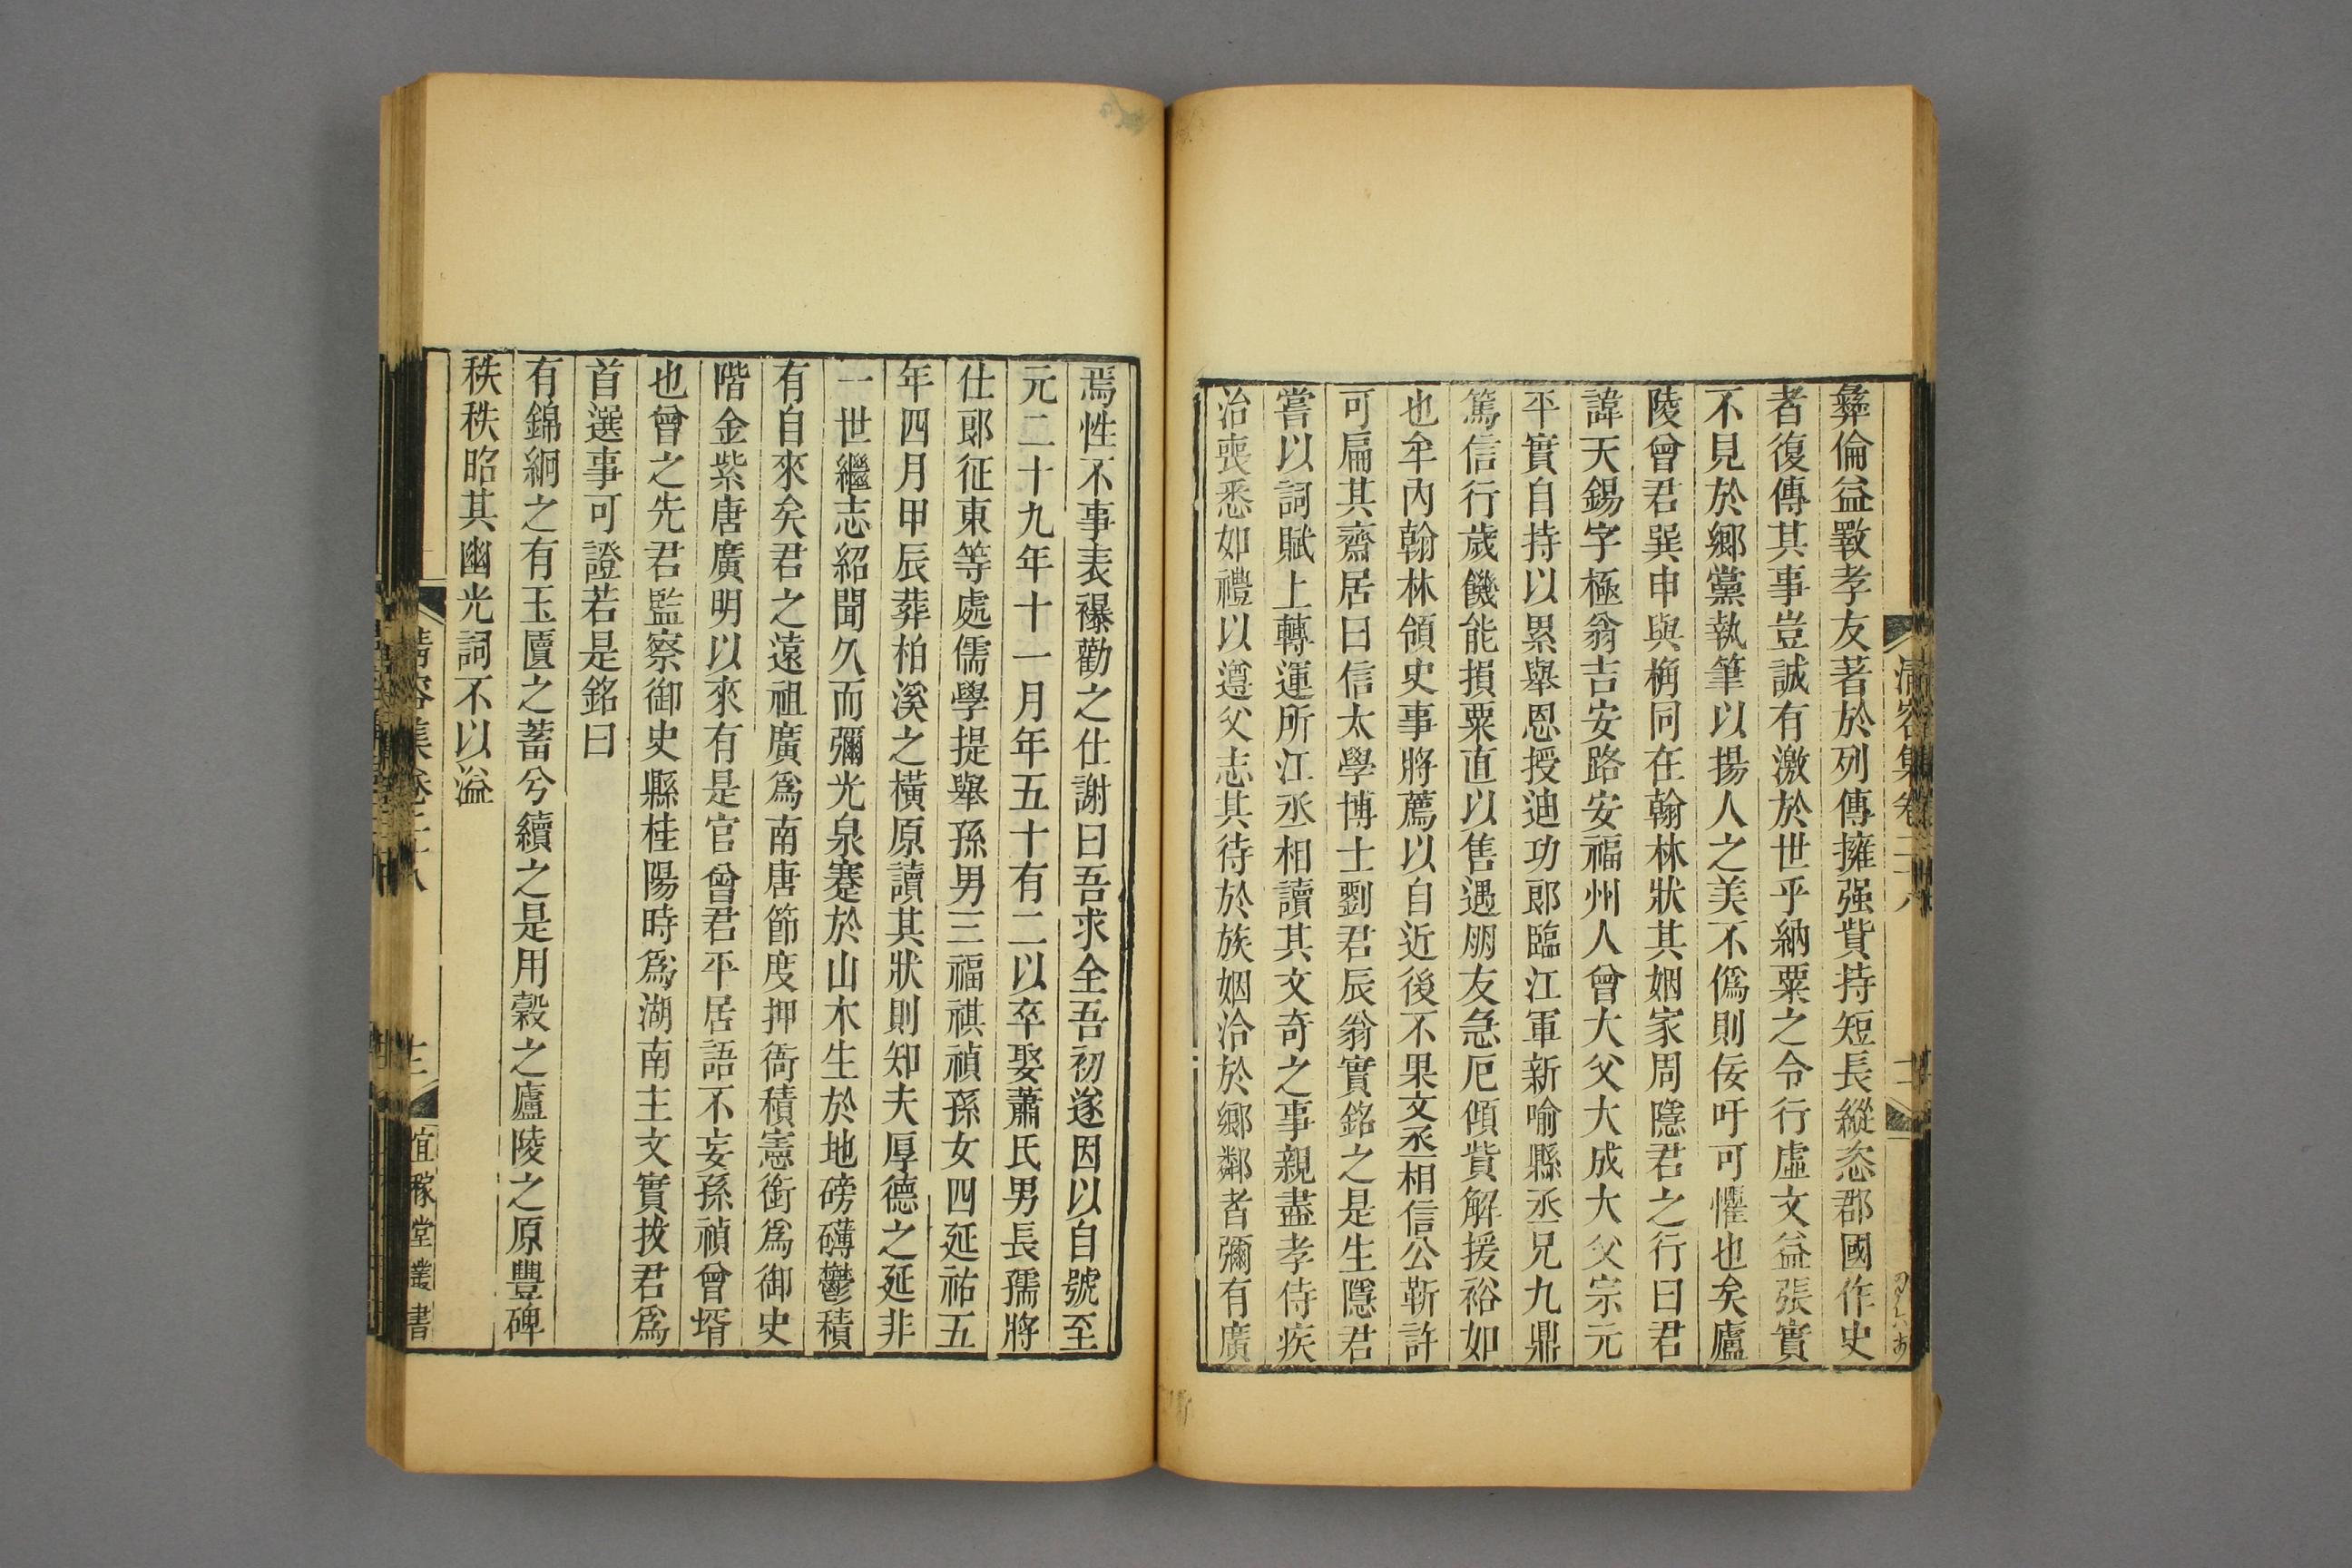 清容集卷二十八
彝倫益斁孝友著於列傳擁强貲持短長縱恣郡國作史
者復傳其事豈誠有激於世乎納粟之令行虛文益張實
不見於鄉黨執筆以揚人之美不僞則佞吁可懼也矣廬
陵曾君巽申與桷同在翰林狀其姻家周隱君之行曰君
諱天錫字極翁吉安路安福州人曾大父大成大父宗元
平實自持以累舉恩授迪功郎臨江軍新喻縣丞兄九鼎
篤信行歲饑能損粟直以售遇朋友急厄傾貲解援裕如
也牟內翰林領史事將薦以自近後不果文丞相信公靳許
可扁其齋居曰信太學博士劉君辰翁實銘之是生隱君
嘗以詞賦上轉運所江丞相讀其文奇之事親盡孝侍疾
治喪悉如禮以遵父志其待於族姻洽於鄉鄰者彌有廣
焉性不事表襮勸之仕謝曰吾求全吾初遂因以自號至
元二十九年十一月年五十有二以卒娶蕭氏男長孺將
仕郎征東等處儒學提舉孫男三福祺禎孫女四延祐五
年四月甲辰葬柏溪之橫原讀其狀則知夫厚德之延非
一世繼志紹聞久而彌光泉蹇於山木生於地磅礴鬱積
有自來矣君之遠祖廣爲南唐節度押衙積憲銜爲御史
階金紫唐廣明以來有是官曾君平居語不妄孫禎曾壻
也曾之先君監察御史縣桂陽時爲湖南主文實拔君爲
首選事可證若是銘曰
有錦絅之有玉匵之蓄兮續之是用穀之廬陵之原豐碑
秩秩昭其幽光詞不以溢
清容集卷二十八
宜稼堂叢書